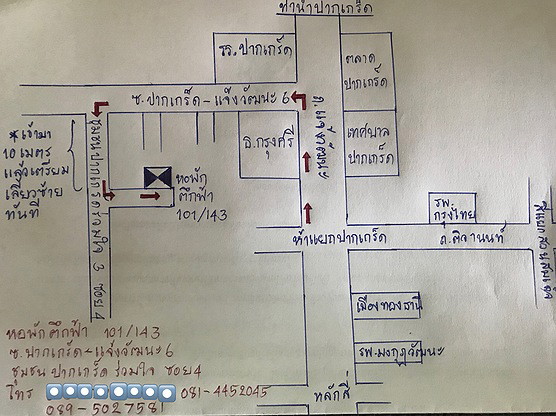 ท่าน้ำปากเกร็ด
รร.ปากเกร็ด
ตลาด
ปากเกร็ด
ซ.ปากเกร็ด-แจ้งวัฒนะ 6
ถ.แจ้งวัฒนะ
ธ.กรุงศรี
เทศบาล
ปากเกร็ด
*เข้ามา
10 เมตร
แล้วเตรียม
เลี้ยวซ้าย
ทันที
ชุมชนปากเกร็ดร่วมใจ 3 ซอย 4
หอพัก
ตึกฟ้า
101/143
รพ.
กรุงไทย
ห้าแยกปากเกร็ด
ถ.ติวานนท์
เมืองทองธานี
รพ.มงกุฎวัฒนะ
หลักสี่
หอพักตึกฟ้า 101/143
ซ.ปากเกร็ด-แจ้งวัฒนะ 6
ชุมชน ปากเกร็ด ร่วมใจ ซอย 4
โทร 081-4452045
089-5027581